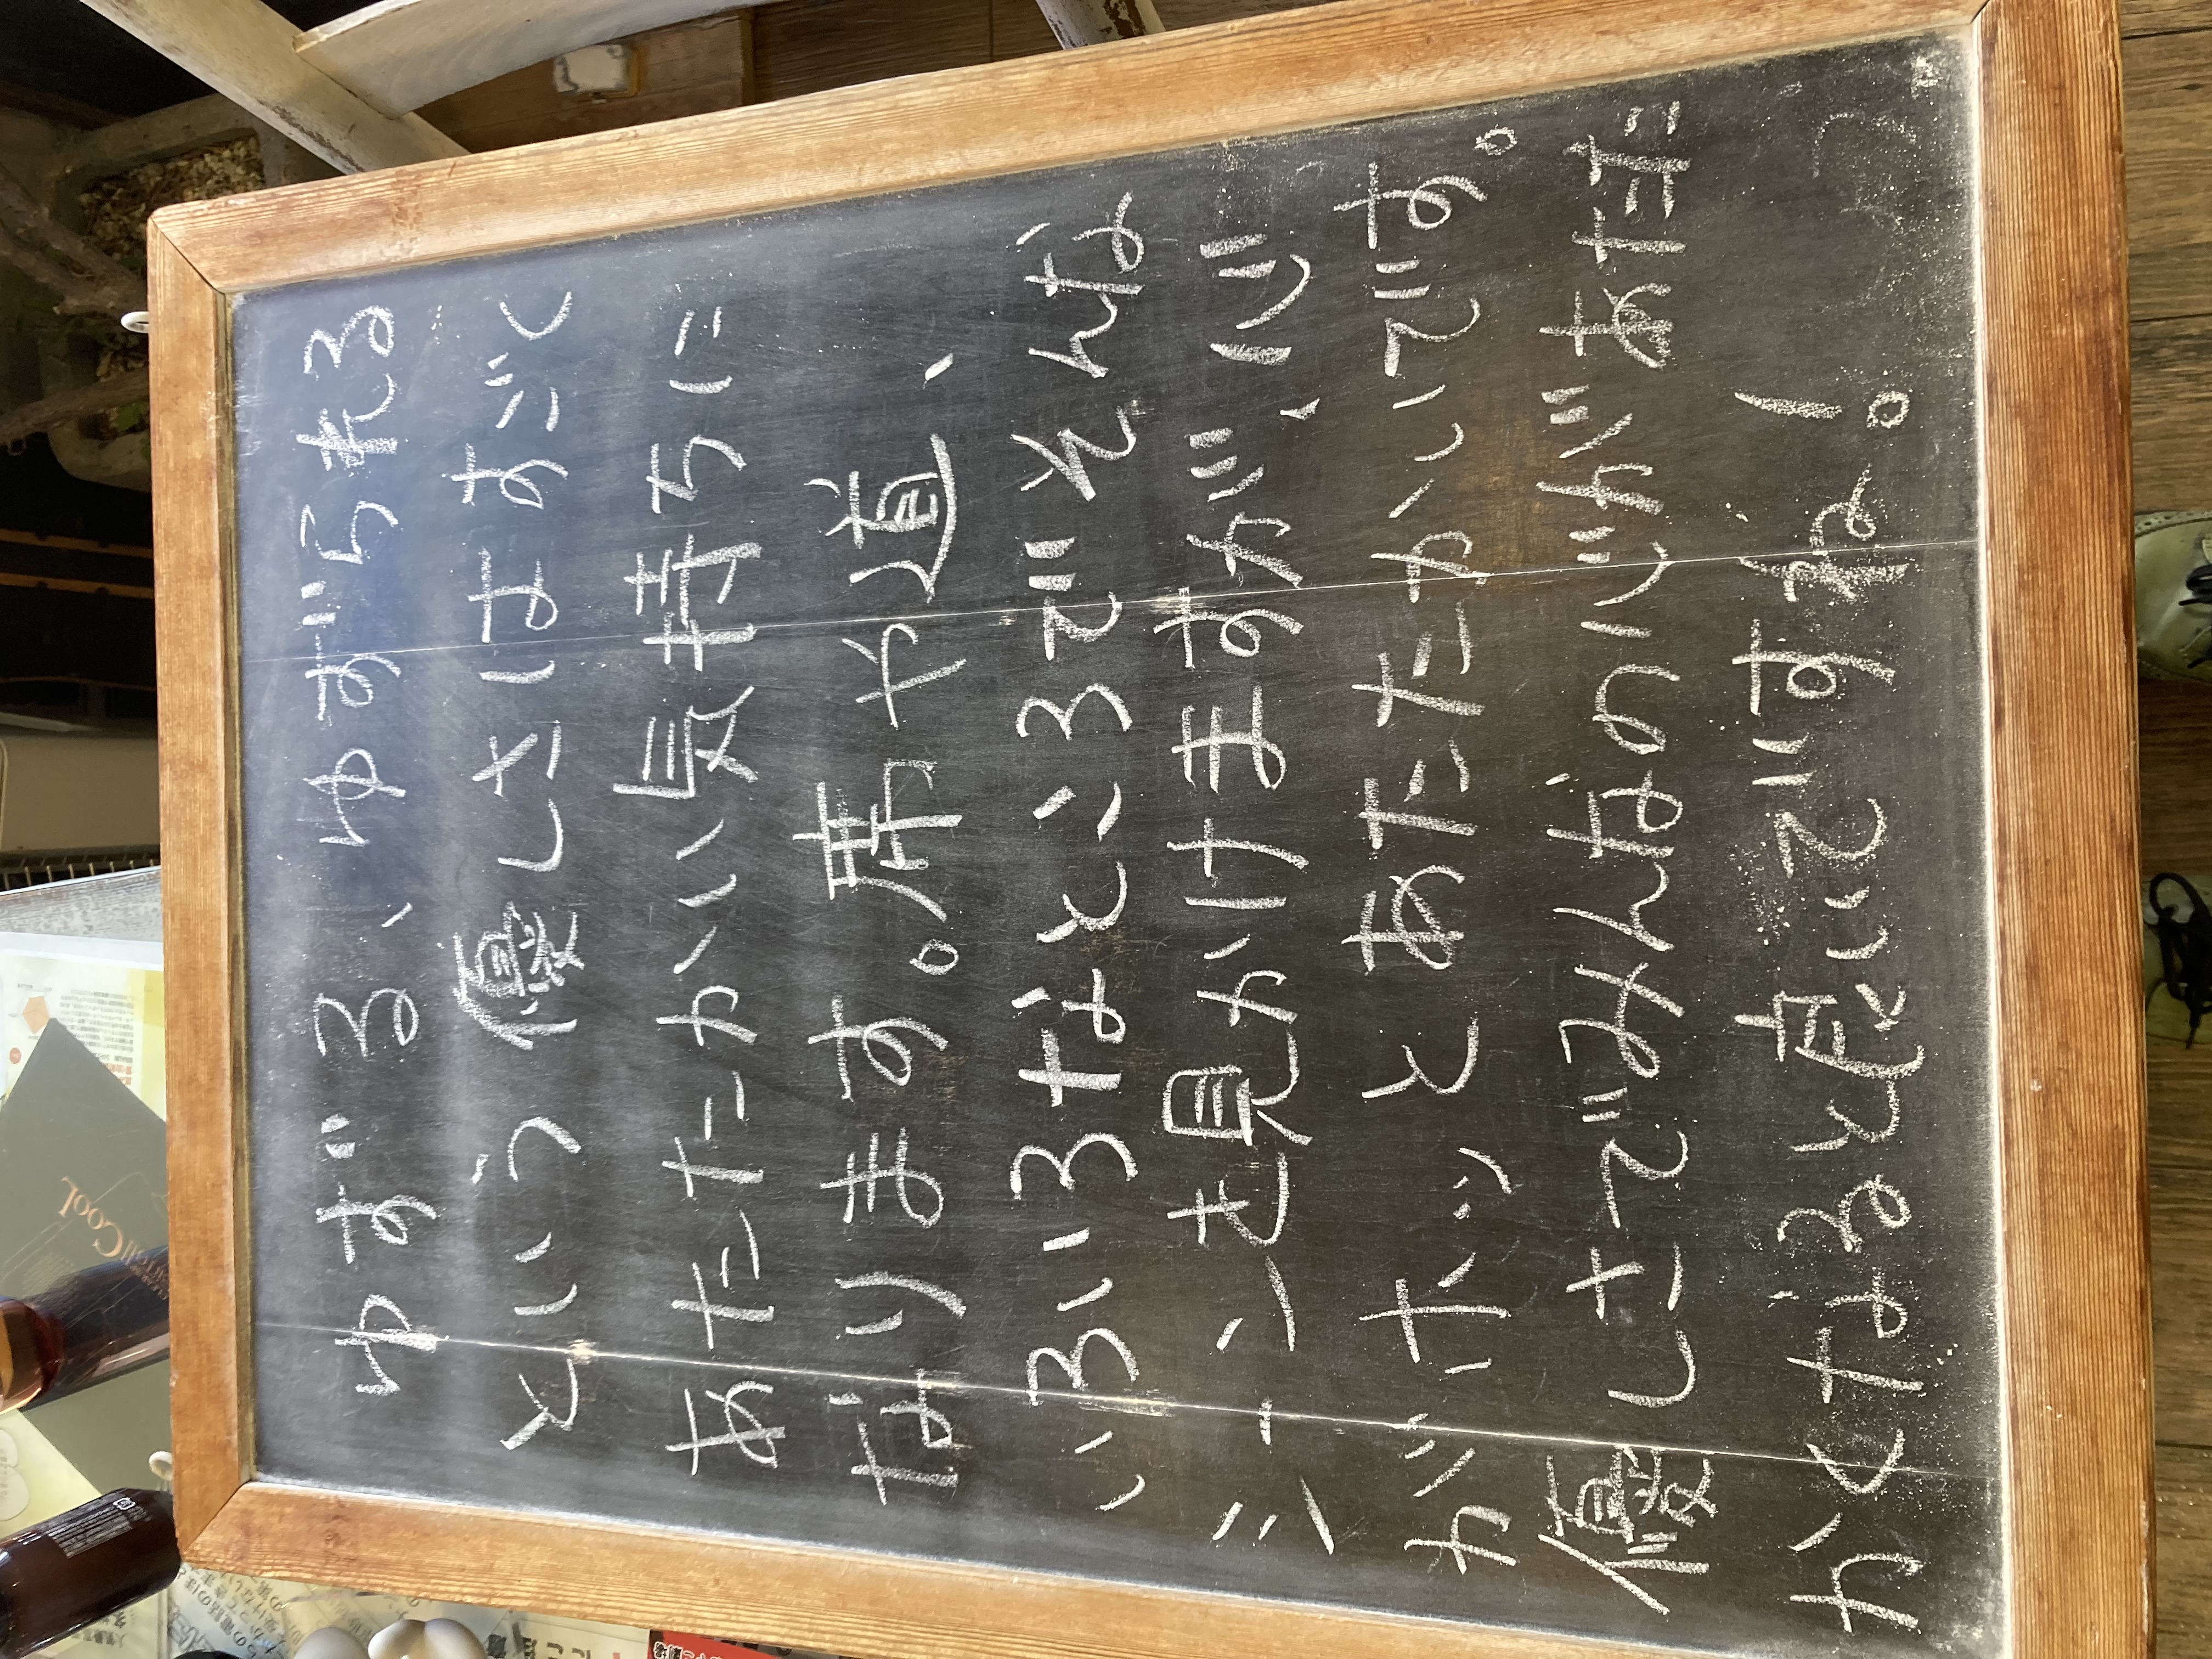 ゆずる、ゆずられる
という優しさはすごく
あたたかい気持ちに
なります。席や道、
いろいろなところでそんな
シーンを見かけますが、心
がホッとあたたかいです。
優しさでみんなの心があたた
かくなると良いですね。
CooL